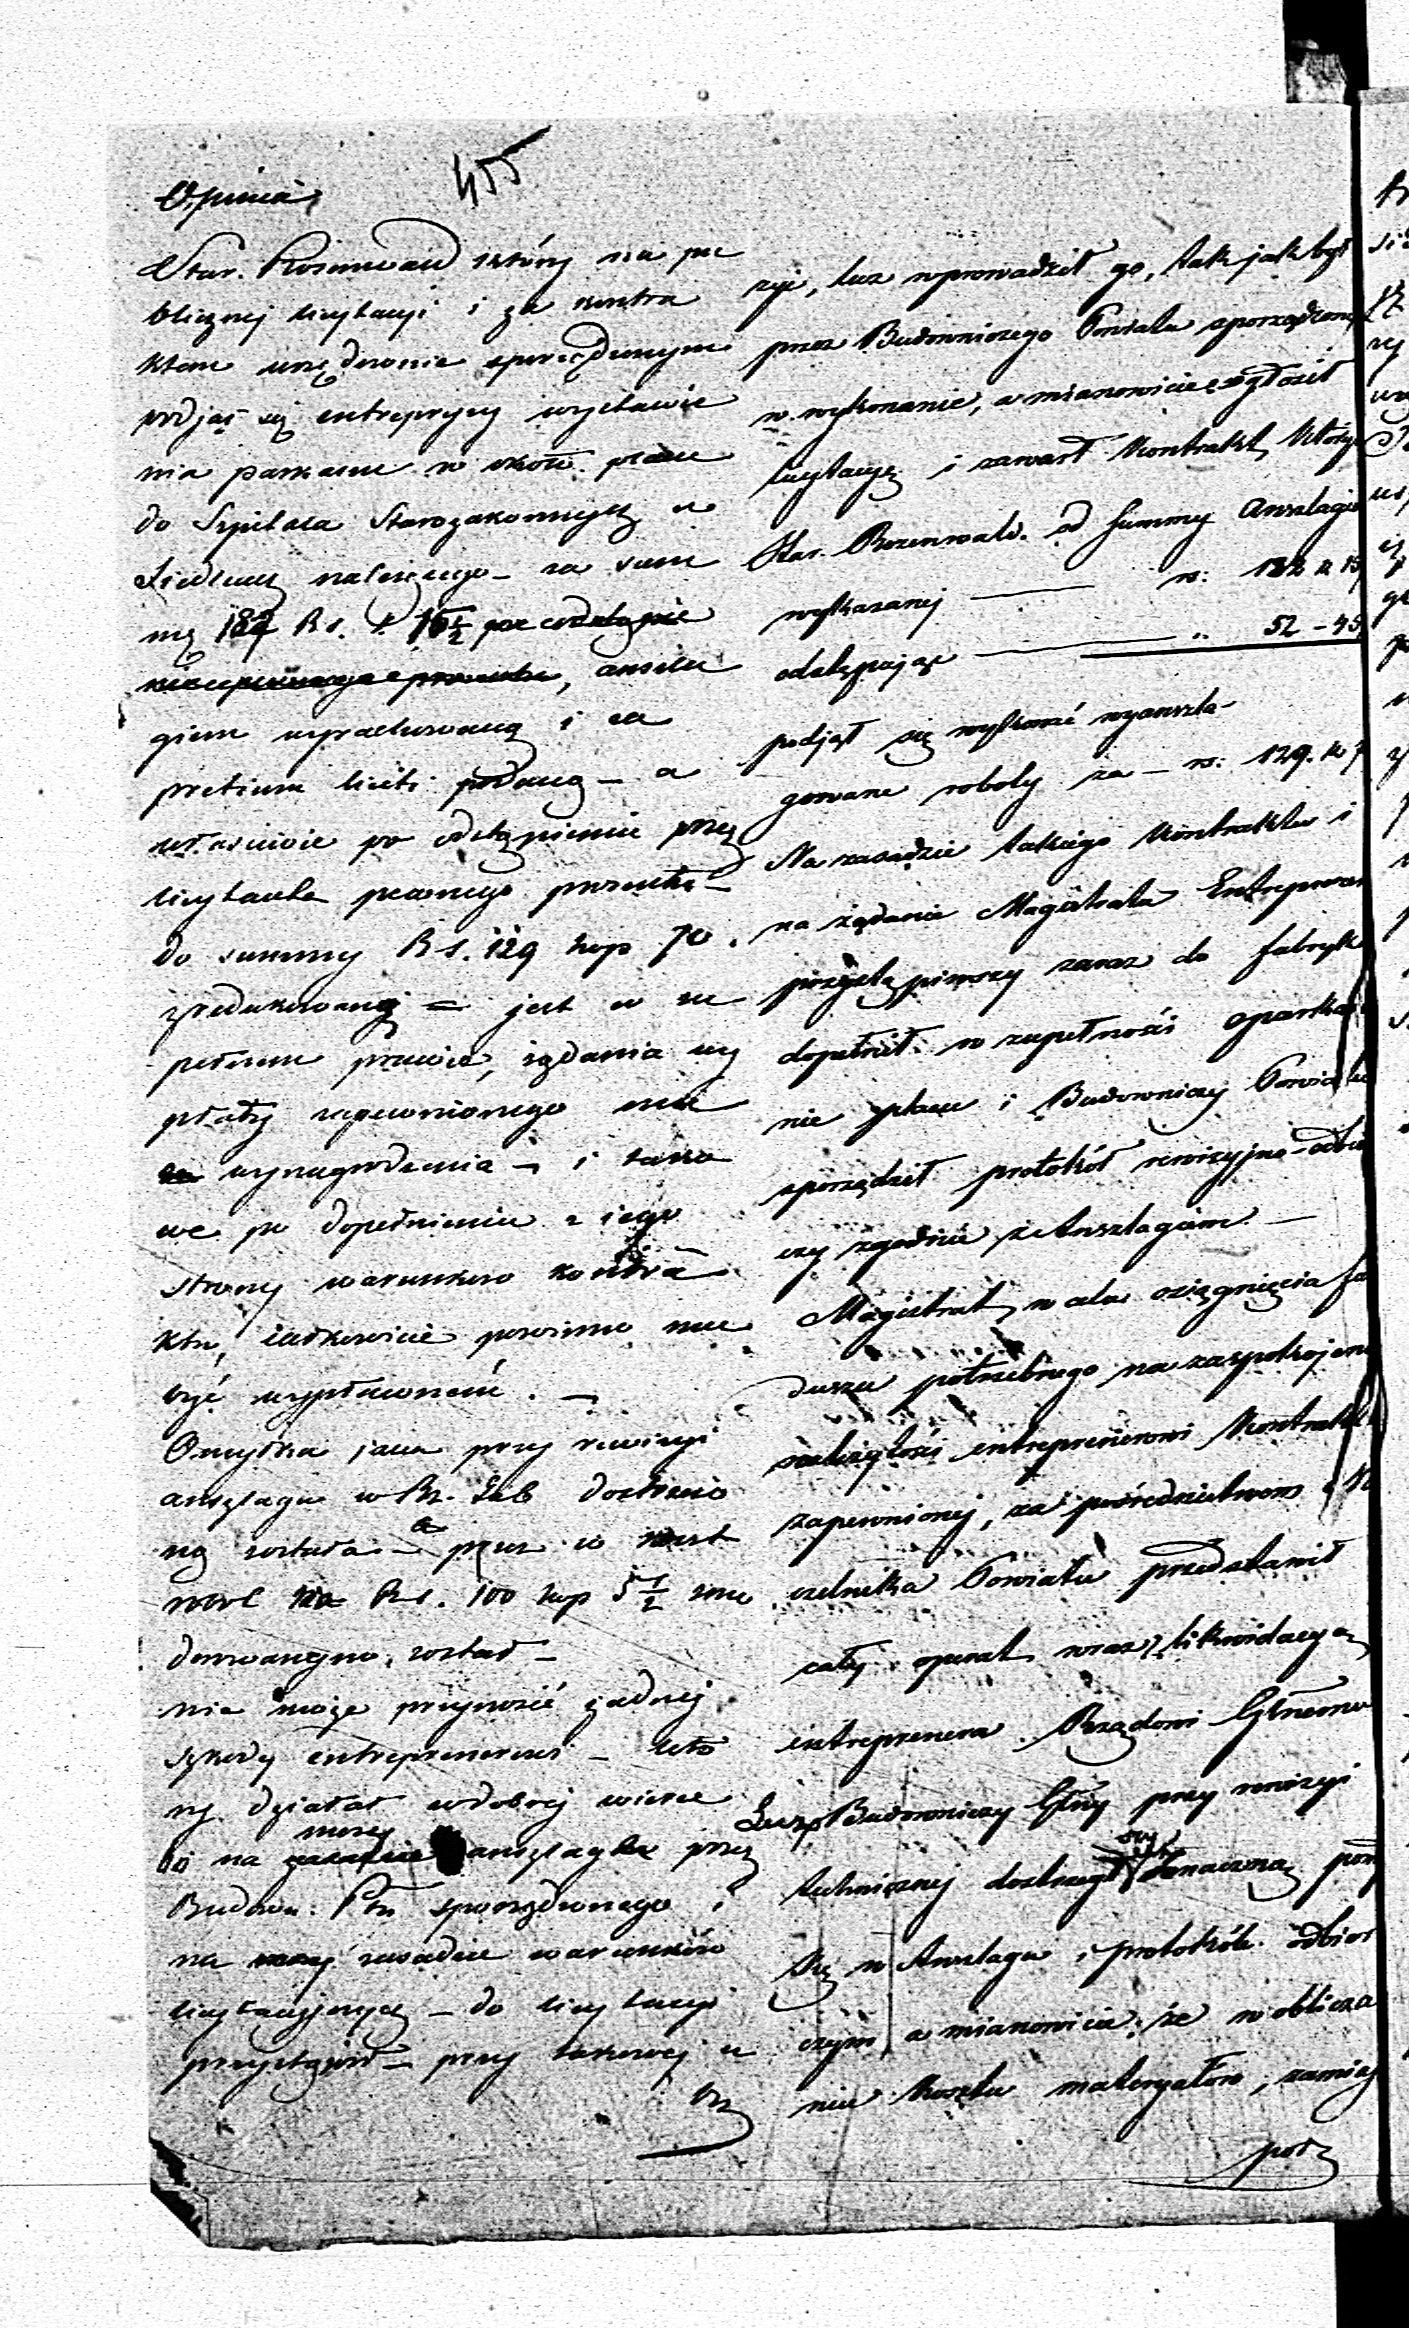 455
Opinia
Star. Rosenwald który na pu
blicznej licytacji i za kontra
ktem urzędownie sporządzonym
podjął się entrepryzy wystawie
nia parkanu w około placu
do Szpitala Starozakonnych w
Siedlcach należącego – za sum
mę 182 Rs. k. 15½
, anszla
giem wyrachowaną i za
pretium liciti podaną – a
właściwie po odstąpieniu przez
licytanta pewnego procentu –
do summy Rs. 129 kop 70.
zredukowaną – jest w zu
pełnem prawie, żądania wy
płaty zapewnionego mu
wynagrodzenia – i tako
we po dopełnieniu z jego
strony warunków kontra
ktu, całkowicie powinno mu
być wypłacone. –
Omyłka jaka przy rewizyi
anszlagu w Rz. Gub dostrzeżo
ną została – a przez
Rs. 100 kop 5½
został –
nie może przynosić żadnej
szkody entreprenerowi – któ
ry działał w dobrej wierze
bo na mocy anszlagu przez
Budown. Ptu sporządzonego i
na zasadzie warunków
licytacyjnych – do licytacyi
przystąpił – przy takowej u
trz
zyi, lecz wprowadził go, tak jak był
przez Budowniczego Powiatu sporządzony
w wykonanie, a mianowicie ogłosił
licytacyę i zawarł Kontrakt, którym
Star. Rozenwald. od Summy Anszlagiem
wykazanej — rs: 182 k 15
odstępując — „ 52 – 45
podjął się wykonać wyanszla-
gowane roboty za – rs: 129. k 7
Na zasadzie takiego Kontraktu i
na żądanie Magistratu Entreprener
przystąpiwszy zaraz do fabryki
dopełnił w zupełności oparkanie
nie placu i Budowniczy Powiatu
sporządził protokół rewizyjno-odbior
czy zgodnie z Anszlagiem. –
Magistrat, w celu osiągnięcia fun
duszu potrzebnego na zaspokojenie
należytości entreprenerowi Kontraktem
zapewnionej, za pośrednictwem Na
czelnika Powiatu przedstawił
cały operat wraz z likwidacyą
entreprenera Rządowi Gbrnemu
Lecz Budowniczy Gbny przy rewizyi
technicznej dostrzegł znaczną pomył
kę w Anszlagu i protokóle odbior
czym a mianowicie: że w oblicza
niu Kosztu materyałów, zamiast
pod